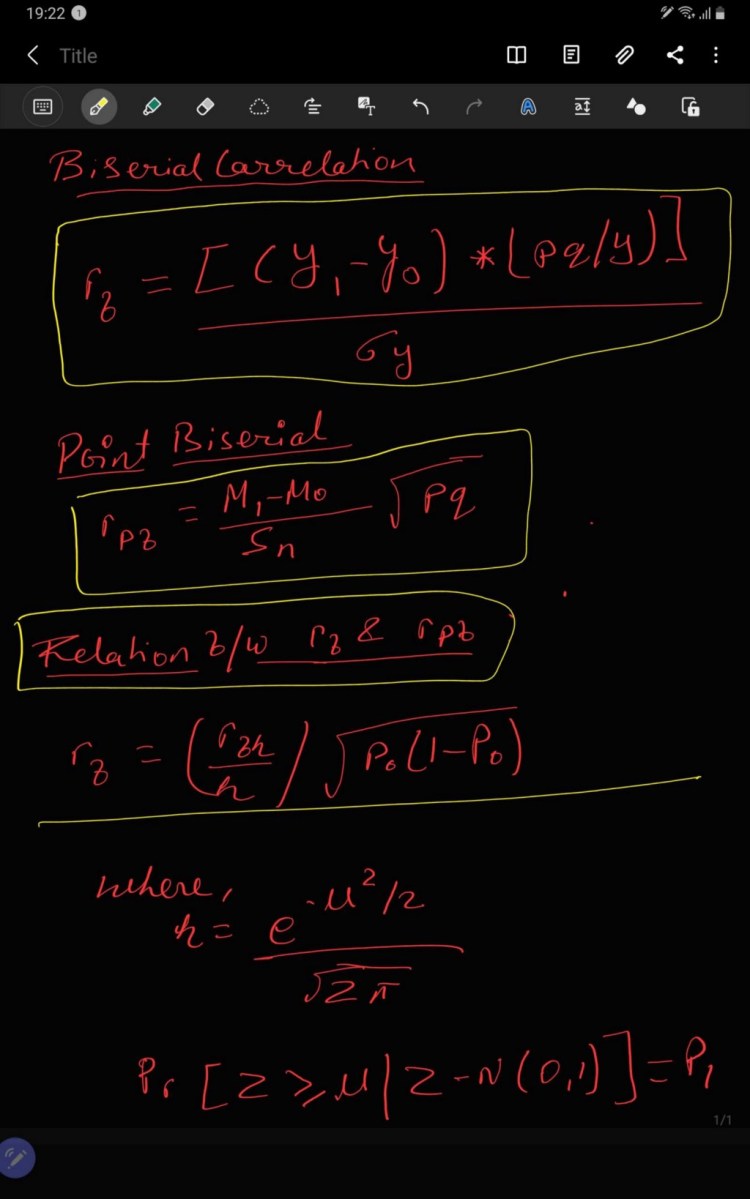 19:22 1
Title
Biserial Carrelation
r_b = [(y₁-y₀) * (pq/y)] / σy
Point Biserial
r_pb = M₁-M₀ / Sn √pq
Relation b/w r_b & r_pb
r_b = (r_bh / h) √P₀(1-P₀)
where,
h = e^-u²/2 / √2π
Pr [Z ≥ u | Z ~ N(0,1)] = P₁
1/1